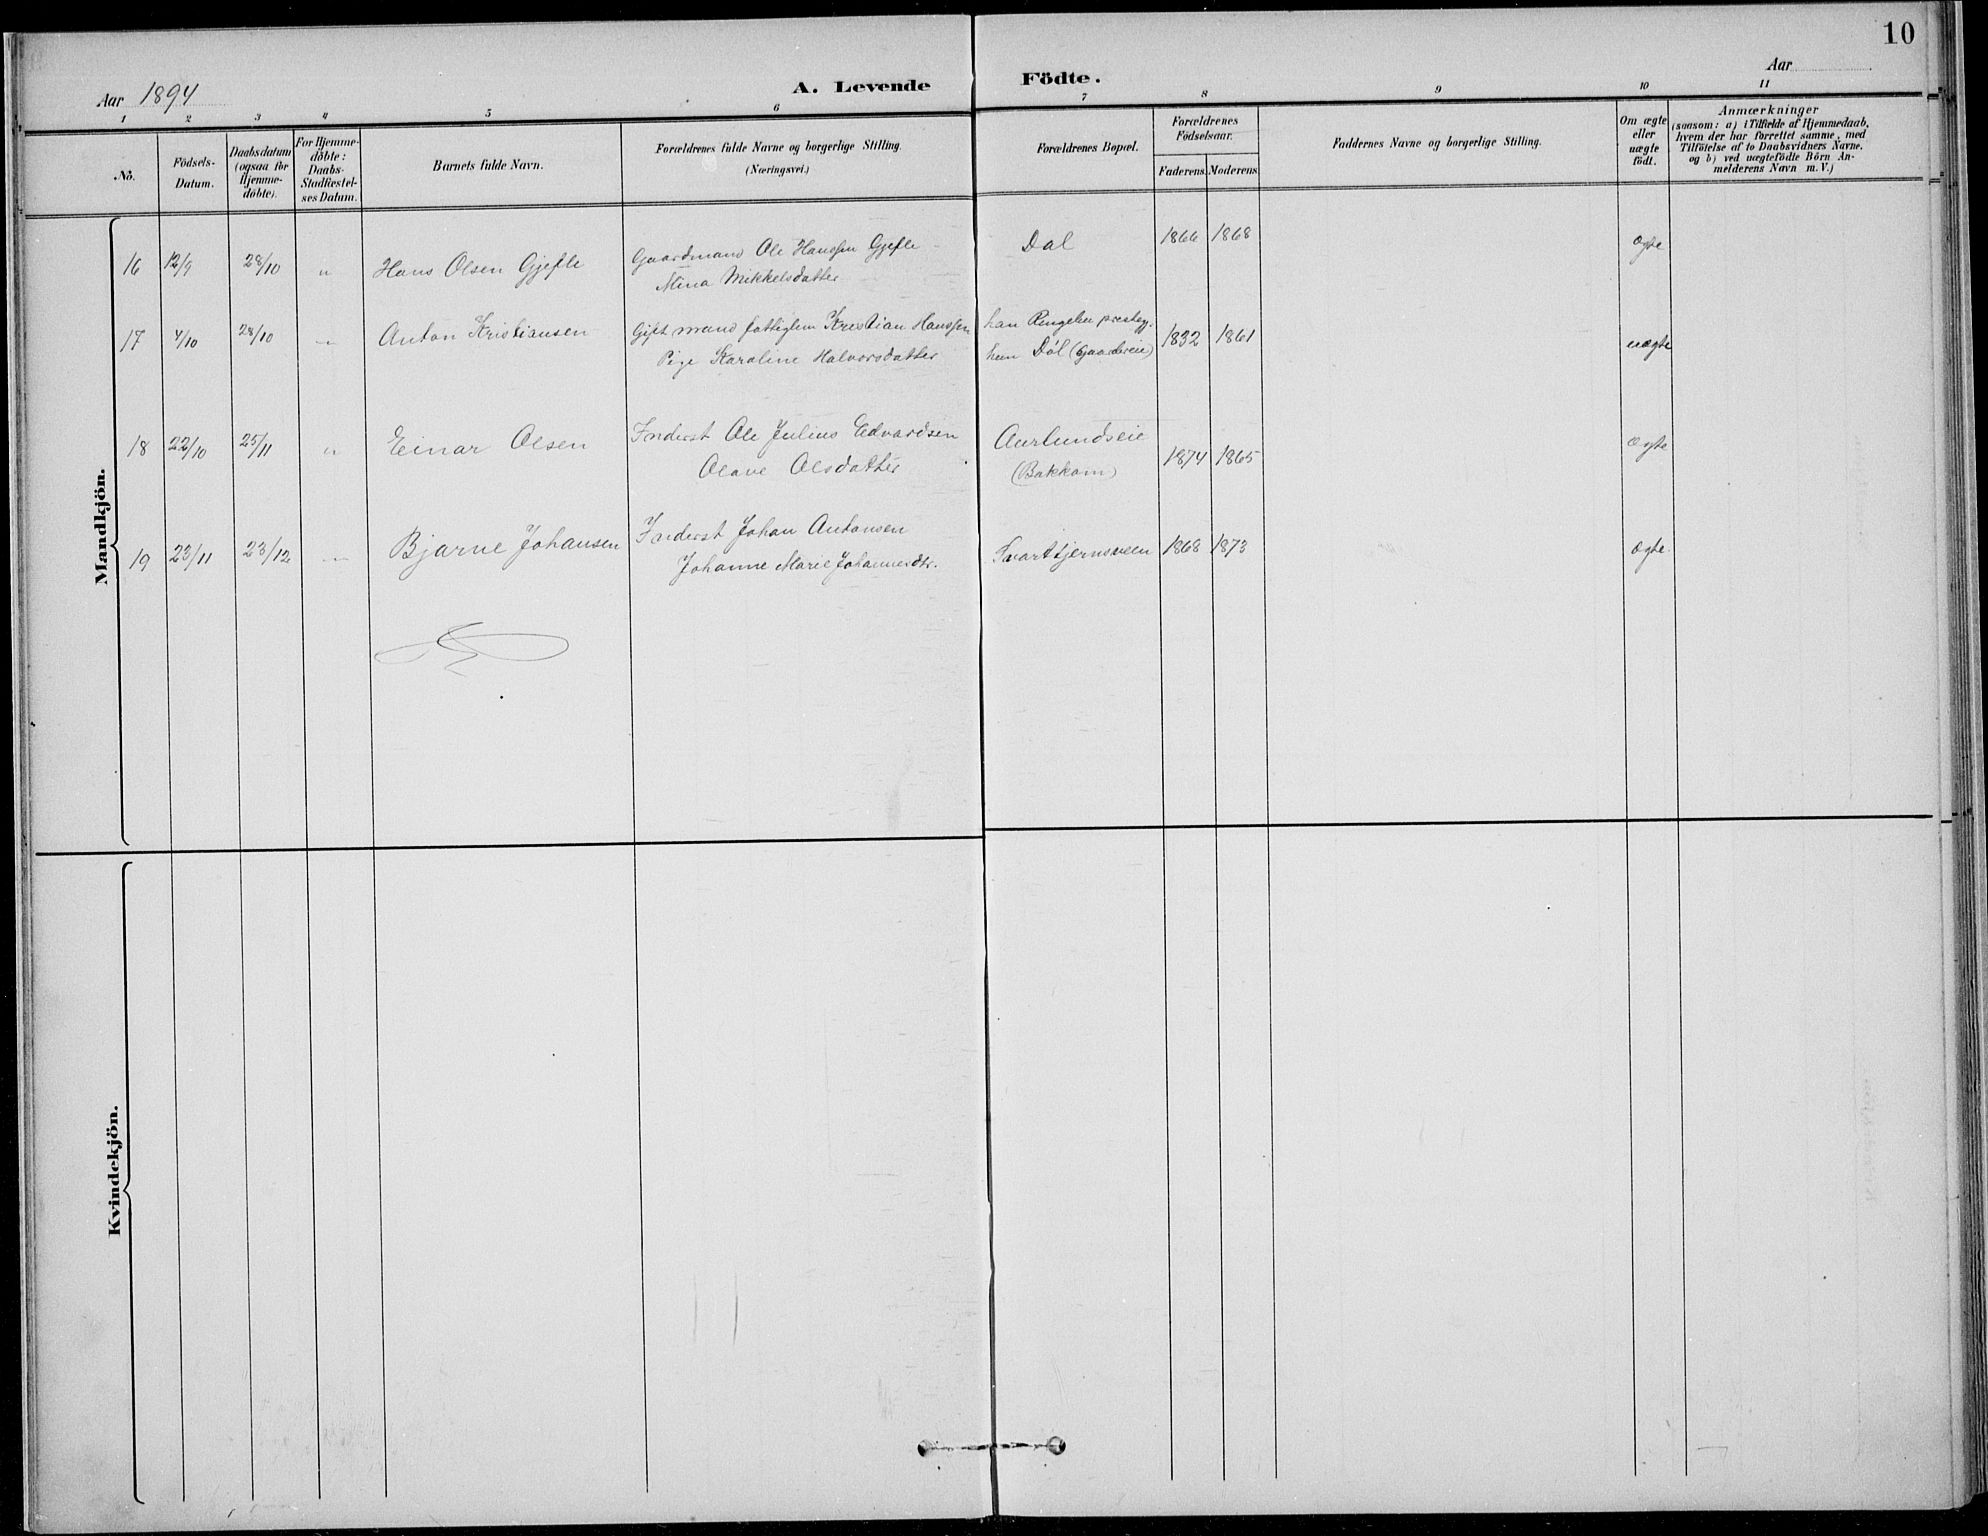 10
Aar 1894
A. Levende Födte.
Aar
1 2 3 4 5 6 7 8 9 10 11
No.
Födsels-Datum.
Daabsdatum (ogsaa for Hjemme-döbte).
For Hjemme-döbte: Daabs-Stadfæstel-ses Datum.
Barnets fulde Navn.
Forældrenes fulde Navne og borgerlige Stilling. (Næringsvei.)
Forældrenes Bopæl.
Forældrenes Födselsaar.
Faderens Moderens
Faddernes Navne og borgerlige Stilling.
Om ægte eller uægte födt.
Anmærkninger
(saasom: a) i Tilfælde af Hjemmedaab,
hvem der har forrettet samme, med
Tilföielse af to Daabsvidners Navne,
og b) ved uægtefödte Börn An-
melderens Navn m. V.)
Mandkjön.
16 12/9 28/10 " Hans Olsen Gjefle Gaardmand Ole Hanssen Gjefle Dal 1866 1868 Ægte
Mina Mikkelsdatter
17 4/10 28/10 " Anton Kristiansen Gift mand fattiglem Kristian Hanssen han Ringebu prestegj. 1832 1861 uægte
Pige Karoline Halvorsdatter hun Döl (Gaardeie)
18 22/10 25/11 " Einar Olsen Inderst Ole Julius Edvardsen Aurlundseie 1874 1865 Ægte
Olave Olsdatter (Bakkom)
19 23/11 23/12 " Bjarne Johansen Inderst Johan Antonsen Svarttjernsveen 1868 1873 Ægte
Johanne Marie Johannesdtr.
Kvindekjön.